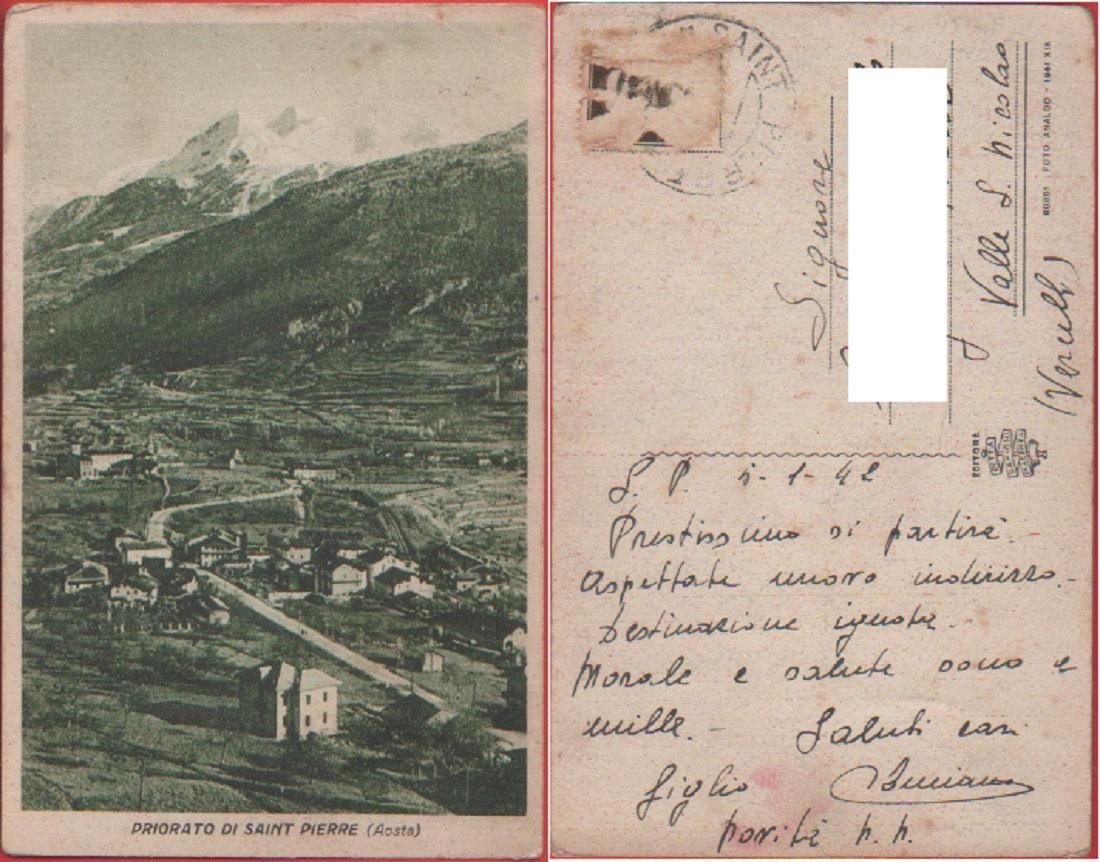 PRIORATO DI SAINT PIERRE (Aosta)
SAINT PIERRE
Signore
Valle S. Nicolao
(Vercelli)
80881 FOTO ANALDO - 1941 XIX
EDITORE
S. P. 1-42
Prestissimo si partirà.
Aspettate nuovo indirizzo.
Destinazione ignota.
Morale e salute sono a
mille. Saluti cari
Giglio